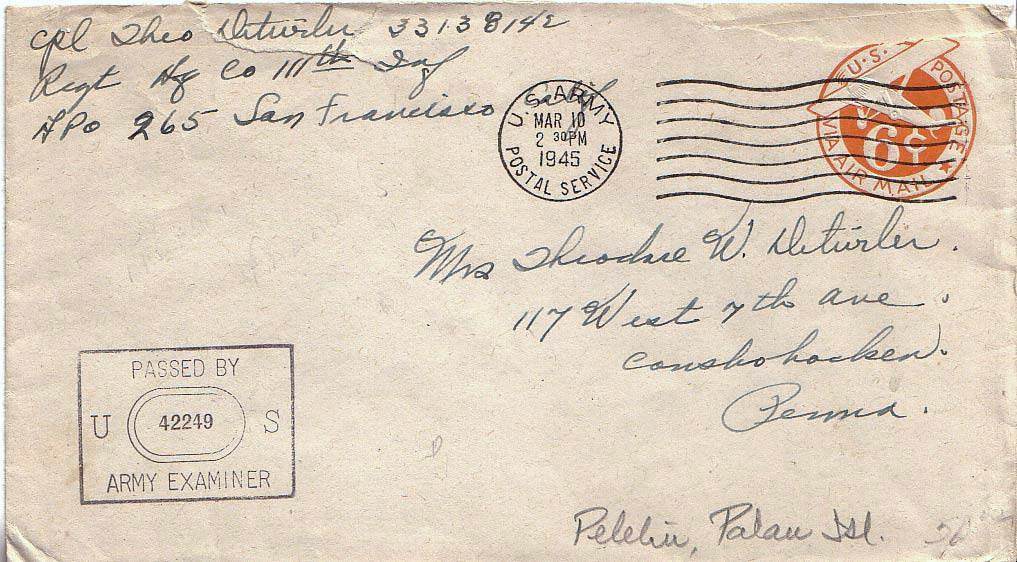 Cpl Theo Deturler 33138142
Regt Hq Co 111th Inf
APO 265 San Francisco Calif
U.S. ARMY
MAR 10
2 30PM
1945
POSTAL SERVICE
U.S. POSTAGE
6¢
VIA AIR MAIL
Mrs Theodore W. Deturler.
117 West 7th ave.
Conshohocken.
Penna.
PASSED BY
U 42249 S
ARMY EXAMINER
Peleliu, Palau Isl.